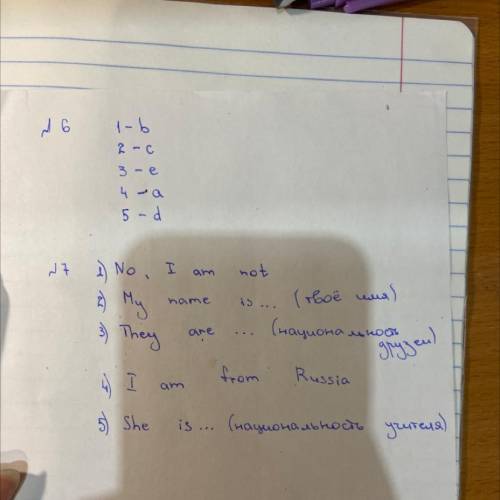 № 6 1 - b
2 - c
3 - e
4 - a
5 - d
№ 7 1) No, I am not
2) My name is ... (твоё имя)
3) They are ... (национальность друзей)
4) I am from Russia
5) She is ... (национальность учителя)